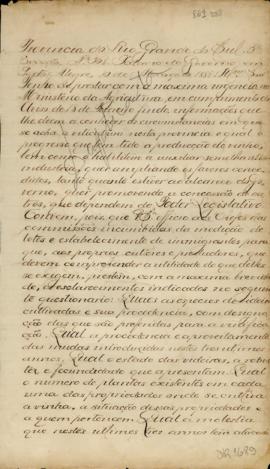 Provincia do Rio Grande do Sul 3ª
Secção Nº 391 Palacio do Governo em
Porto Alegre, 12 de Março de 1885 Illmo Snr
Tendo de prestar com a maxima urgencia ao
Ministerio da Agricultura, em cumprimento do
Aviso de de Fevereiro findo informações que
lhe deem a conhecer as circumstancias em que
se acha a viticultura nesta provincia e qual o
progresso que tem tido a producção do vinho,
bem como o habilitem a auxiliar semelhante
industria, quer ampliando os favores conce-
didos, tanto quanto estiver ao alcance do go-
verno, quer promovendo a concessão de ou-
tros, que dependem do Poder Legislativo
Convem, pois, que VS. officie aos Chefes das
commissões incumbidas da medição de
lotes e estabelecimento de immigrantes para
que, aos proprios cultivadores, productores, que
deverem comprehender a utilidade do que delles
se exigem, prestem, com a maxima brevida-
de, os esclarecimentos indicados no seguin-
te questionario: Quaes as especies de videiras
cultivadas e sua procedencia, com designa-
ção das que são preferidas para a vinifica-
ção. Qual a procedencia e aproveitamento
das mudas introduzidas nestes tres ultimos
annos. Qual o estado das videiras, a robus-
tez e fecundidade que apresentam. Qual
o numero de plantas existentes em cada
uma das propriedades onde se cultiva
a vinha, a situação dessas propriedades e
a quem pertencem. Qual a molestia
que nestes ultimos tres annos tem atacado